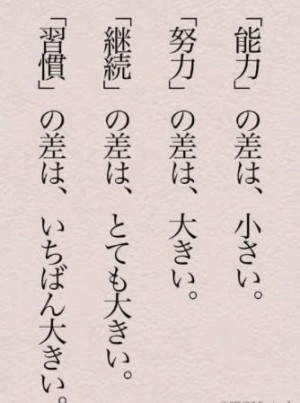 「能力」の差は、小さい。
「努力」の差は、大きい。
「継続」の差は、とても大きい。
「習慣」の差は、いちばん大きい。